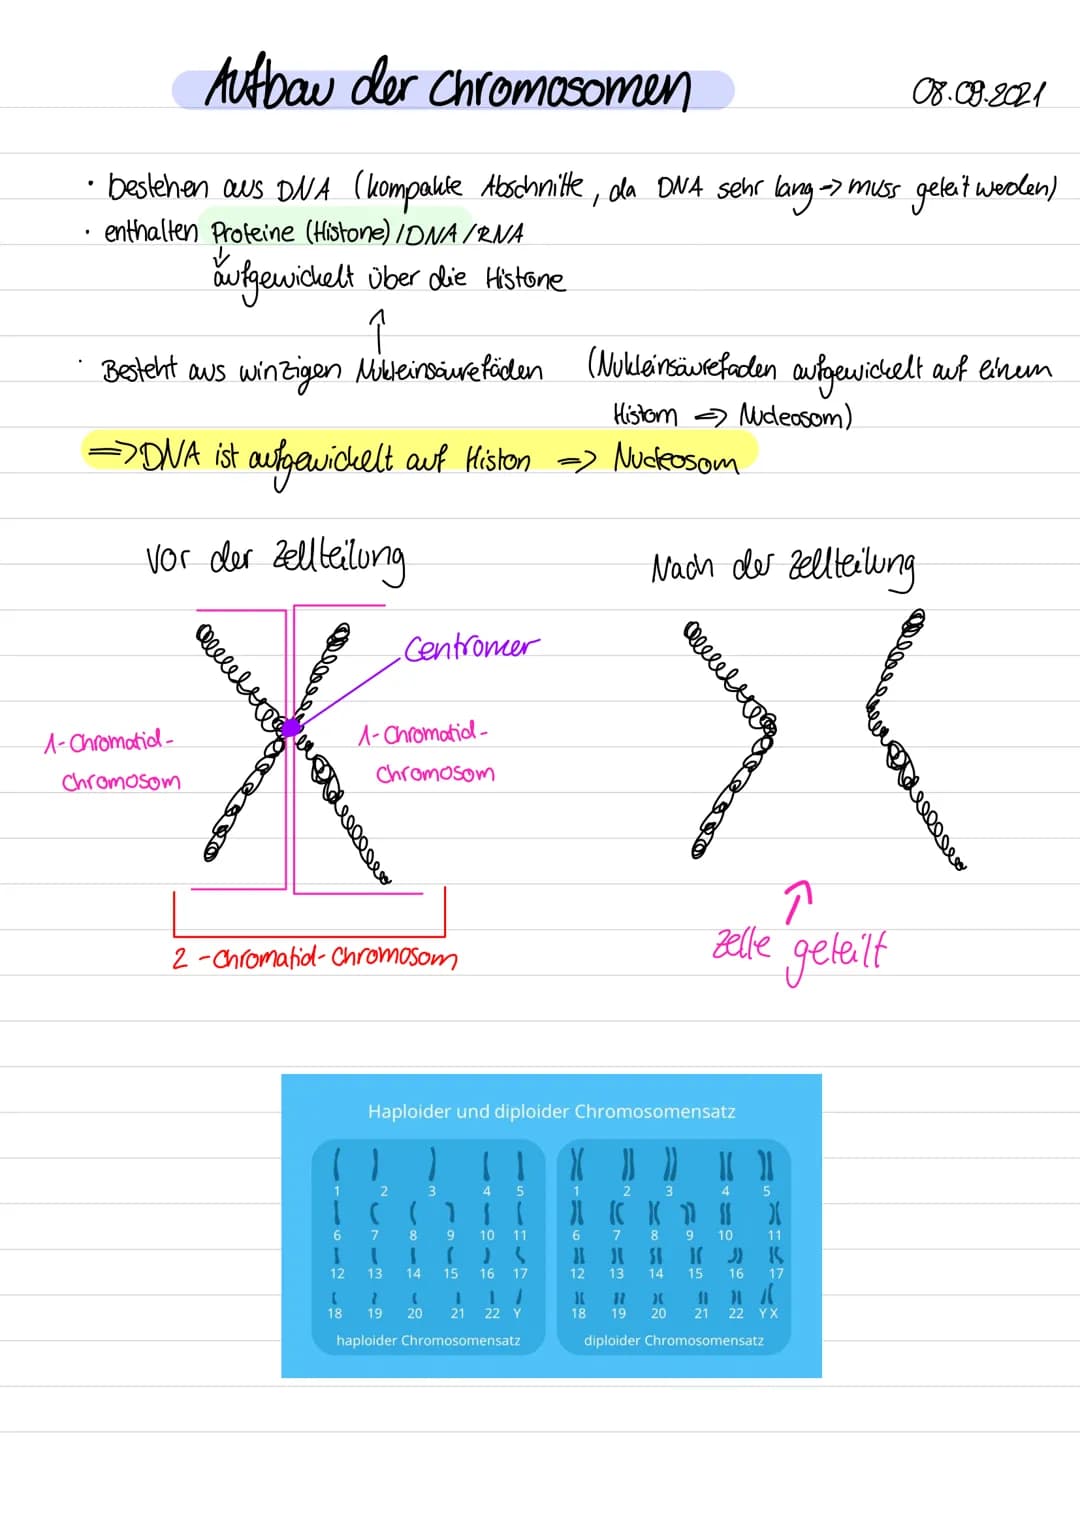 Aufbau der Chromosomen
08.09.2021
• bestehen aus DNA (kompakte Abschnitte, da DNA sehr lang -> muss geteilt werden)
• enthalten Proteine (Histone) / DNA / RNA
↓
aufgewickelt über die Histone
↑
• Besteht aus winzigen Nukleinsäurefäden (Nukleinsäurefaden aufgewickelt auf einem
Histom => Nucleosom)
=> DNA ist aufgewickelt auf Histon => Nucleosom
Vor der Zellteilung
Nach der Zellteilung
Centromer
1-Chromatid-
Chromosom
1-Chromatid-
Chromosom
2-Chromatid-Chromosom
Zelle geteilt
Haploider und diploider Chromosomensatz
1 2 3 4 5
6 7 8 9 10 11
12 13 14 15 16 17
18 19 20 21 22 Y
haploider Chromosomensatz
1 2 3 4 5
6 7 8 9 10 11
12 13 14 15 16 17
18 19 20 21 22 Y X
diploider Chromosomensatz